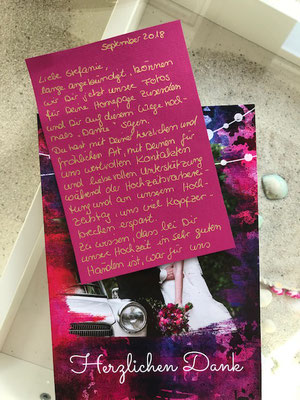 September 2018
Liebe Stefanie,
lange angekündigt, können
wir Dir jetzt unsere Fotos
für Deine Homepage zusenden
und Dir auf diesem Wege noch-
mals „Danke“ sagen.
Du hast mit Deiner herzlichen und
fröhlichen Art, mit Deinen für
uns wertvollen Kontakten
und liebevollen Unterstützung
während der Hochzeitsvorberei-
tung und an unserem Hoch-
zeitstag, uns viel Kopfzer-
brechen erspart.
Zu wissen, dass bei Dir
unsere Hochzeit in sehr guten
Händen ist, war für uns
Herzlichen Dank